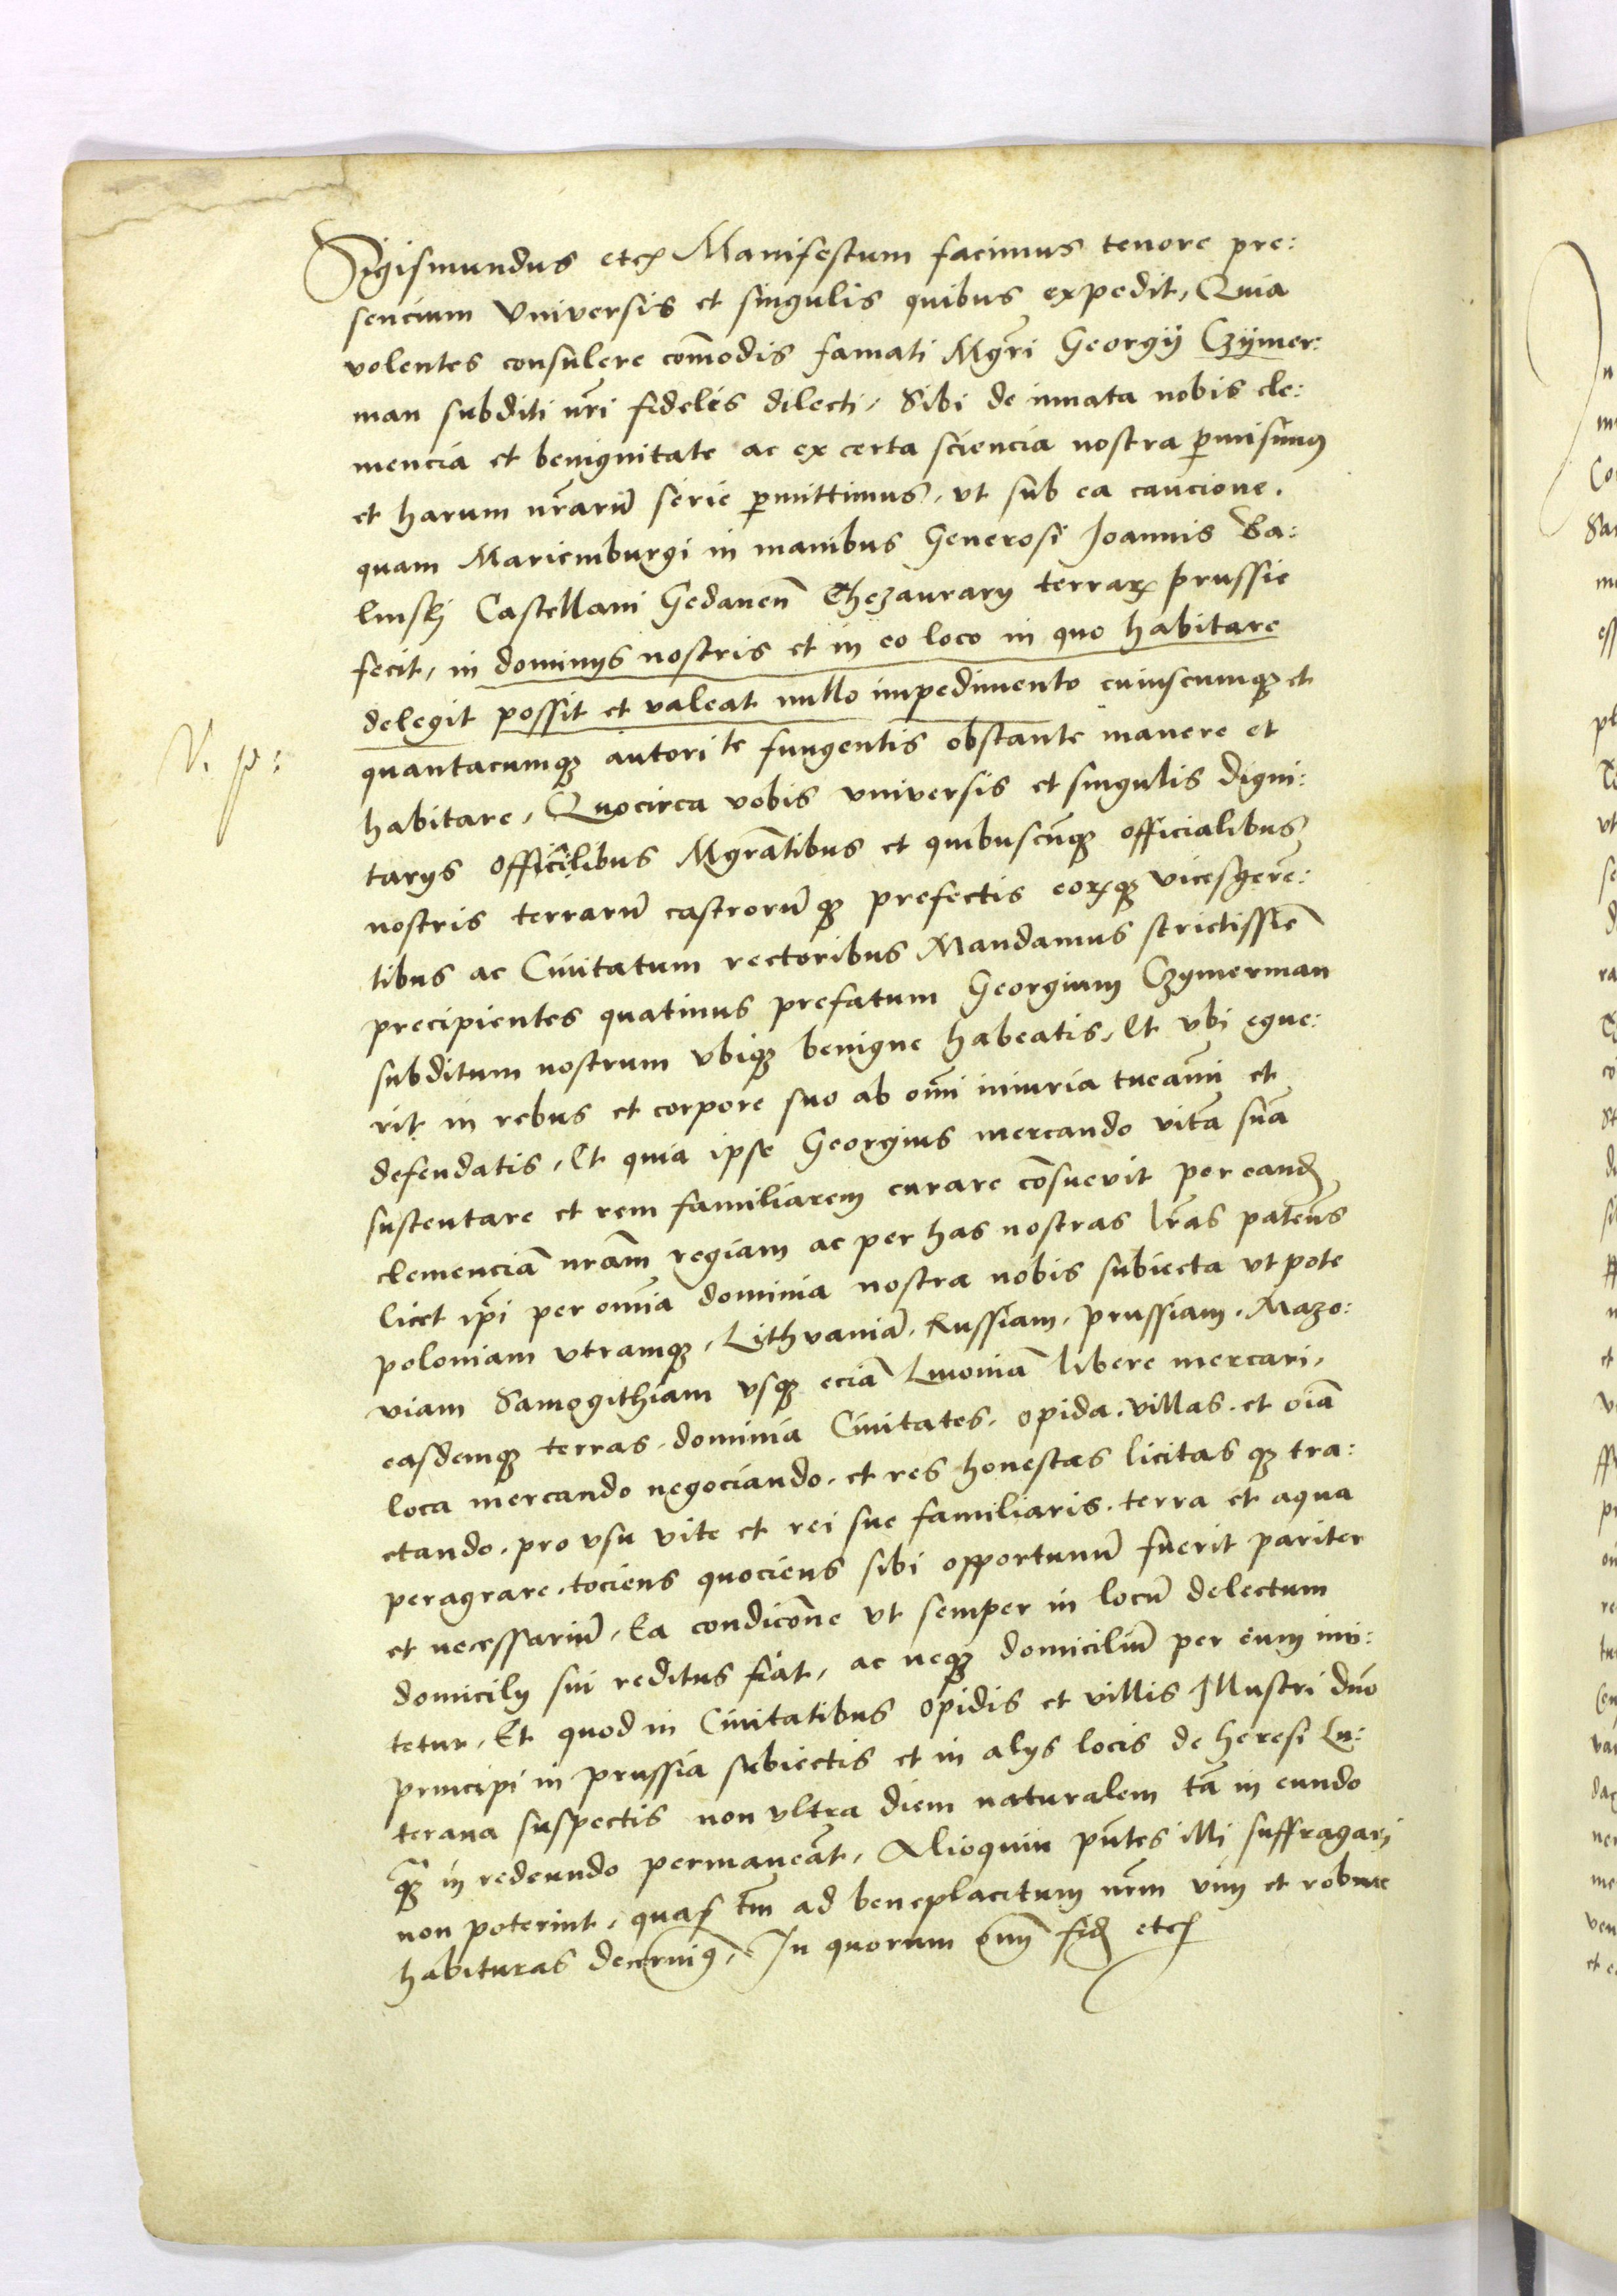 Sigismundus etcꝭ Manifestum facimus tenore pre:
sencium Vniversis et singulis quibus expedit, Quia
volentes consulere com̄odis famati Mgr̄i Georgij Czÿmer:
man subditi nr̄i fidelis dilecti, Sibi de innata nobis cle:
mencia et benignitate ac ex certa sciencia nostra ꝑmisimꝰ
et harum nr̄arū serie ꝑmittimus, vt sub ea caucione.
quam Mariemburgi in manibus Generosi Joannis Ba:
linskj Castellani Gedaneñ Thezaurarÿ terraꝝ prussie
fecit, in dominÿs nostris et in eo loco in quo habitare
delegit possit et valeat nullo impedimento cuiuscumqꝫ et
quantacumqꝫ autori te fungentis obstante manere et
habitare, Quocirca vobis vniversis et singulis digni:
tarÿs officilibus Mgrātibus et quibuscūqꝫ officialibus
nostris terrarū castrorū qꝫ prefectis eoꝝqꝫ vicesgerē:
tibus ac Ciuitatum rectoribus Mandamus strictissie͂
precipientes quatinus prefatum Georgium Czymerman
subditum nostrum vbiqꝫ benigne habeatis, Et vbi egue:
rit in rebus et corpore suo ab om̄i iniuria tueāmi et
defendatis, Et quia ipse Georgius mercando vitā suā
sustentare et rem familiarem curare cōsuevit per eandꝭ
clemenciā nr̄am regiam ac per has nostras lr̄as pateñs
licet ip̄i per omīa dominia nostra nobis subiecta vt pote
poloniam vtramqꝫ, Lithvaniā, Russiam, prussiam, Mazo:
viam Samogithiam vsqꝫ eciā Liuoniā libere mercari,
easdemqꝫ terras, dominia Ciuitates, opida, villas, et oīa
loca mercando negociando, et res honestas licitas qꝫ tra:
ctando, pro vsu vite et rei sue familiaris, terra et aqua
peragrare, tociens quociens sibi opportunū fuerit pariter
et necessariū, Ea condicōne vt semper in locū delectum
domicilÿ sui reditus fiat, ac neqꝫ domiciliū per eum mu:
tetur, Et quod in Ciuitatibus opidis et villis Illustri dn̄o
principi in prussia subiectis et in alÿs locis de heresi Lu:
terana suspectis non vltra diem naturalem tā in eundo
qꝫ̄ in redeundo permaneāt, Alioquin pn̄tes illi suffragarj
non poterint, quas tm̄ ad beneplacitum nr̄m vim et robure
habituras decernimꝰ, In quorum om̄ fidꝭ etcꝭ